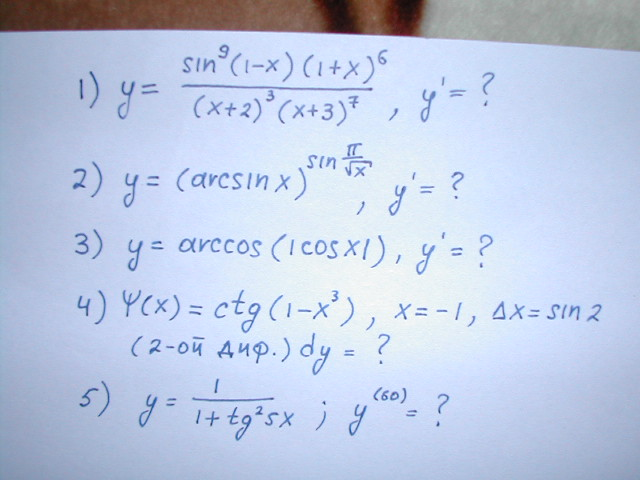 1) y = sin⁹(1-x)(1+x)⁶ / (x+2)³(x+3)⁷ , y' = ?
2) y = (arcsin x)^(sin π/√x) , y' = ?
3) y = arccos (|cos x|), y' = ?
4) Ψ(x) = ctg (1-x³), x = -1, Δx = sin 2
(2-ой диф.) dy = ?
5) y = 1 / 1+tg²5x ; y⁽⁶⁰⁾ = ?